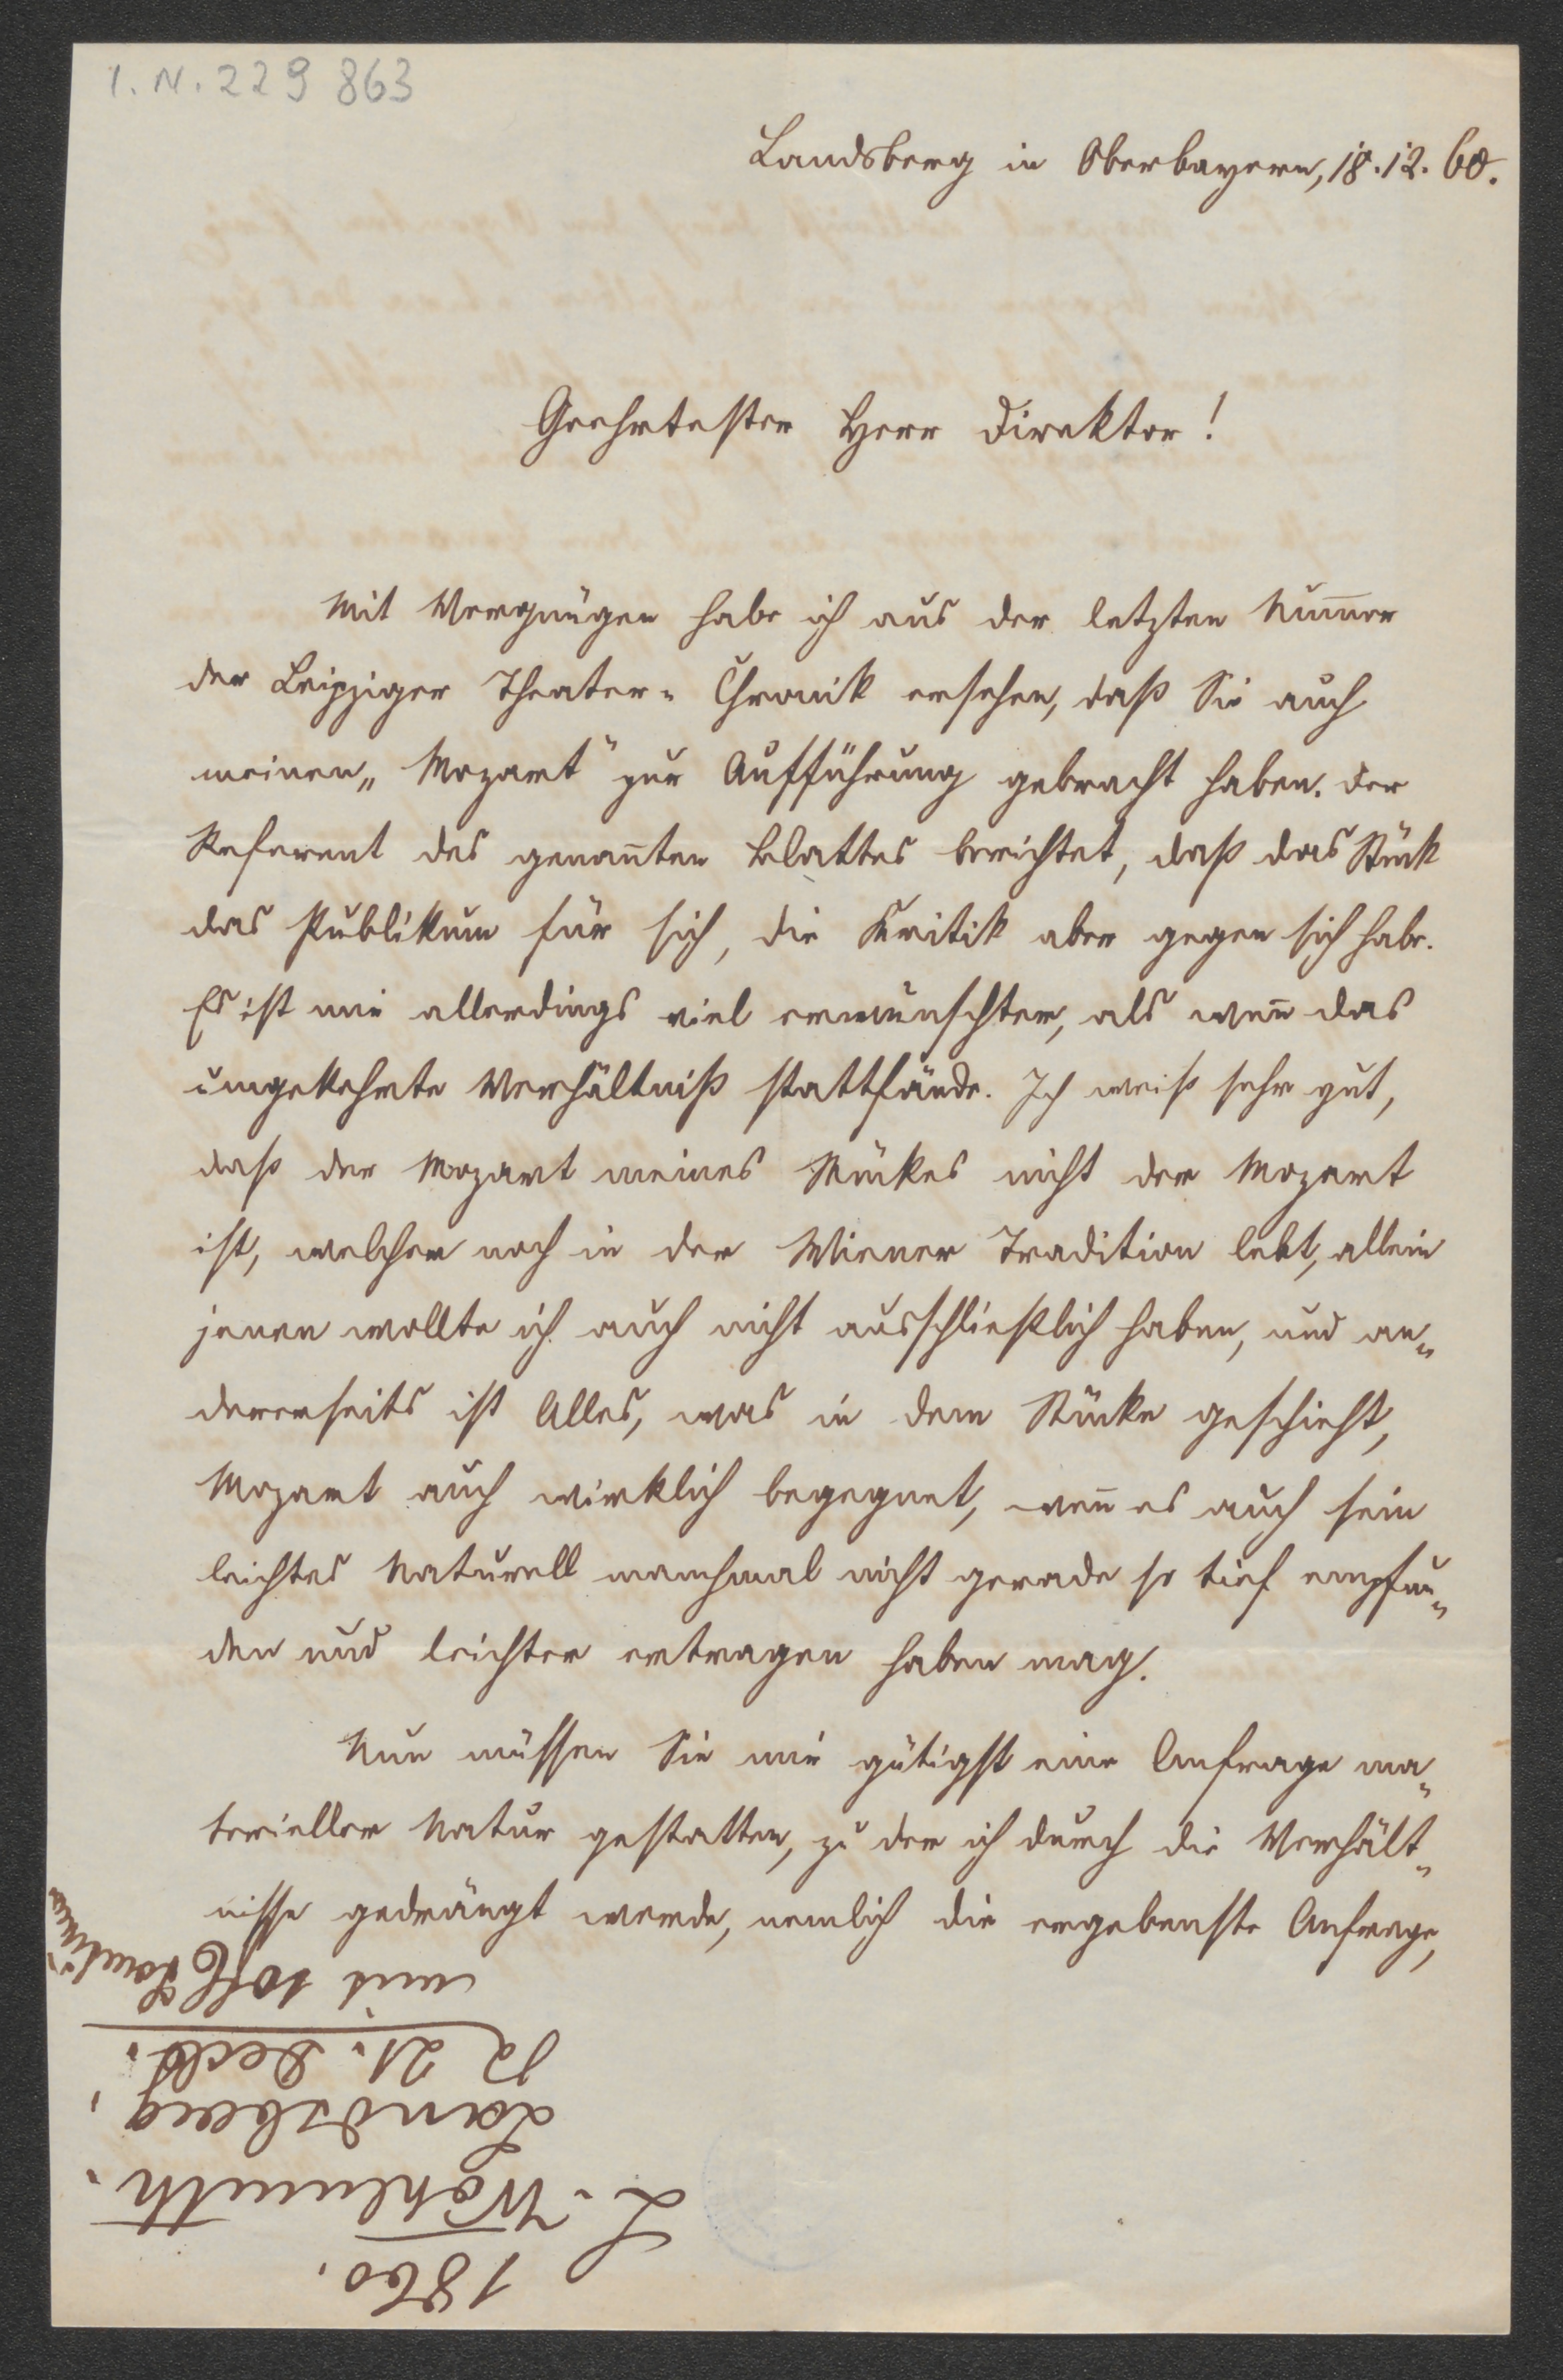 I.N. 229 863
Landsberg in Oberbayern, 18.12.60.
Geehrtester Herr Direktor!
Mit Vergnügen habe ich aus der letzten Num̅er
der Leipziger Theater- Chronik ersehen, daß Sie auch
meinen „Mozart“ zur Aufführung gebracht haben. Der
Referent des genan̅ten Blattes berichtet, daß das Stück
das Publikum für sich, die Kritik aber gegen sich habe.
Es ist mir allerdings viel erwünschter, als wen̅ das
umgekehrte Verhältniß stattfände. Ich weiß sehr gut,
daß der Mozart meines Stückes nicht der Mozart
ist, welcher noch in der Wiener Tradition lebt, allein
jenen wollte ich auch nicht ausschließlich haben, und an-
dererseits ist Alles, was in dem Stücke geschieht,
Mozart auch wirklich begegnet, wen̅ es auch sein
leichtes Naturell manchmal nicht gerade so tief empfun-
den und leichter ertragen haben mag.
Nun müssen Sie mir gütigst eine Anfrage ma-
terieller Natur gestatten, zu der ich durch die Verhält-
nisse gedrängt werde, nemlich die ergebenste Anfrage,
1860.
L. Wohlmuth.
Landsberg.
21. Decb.
mit 10 fl